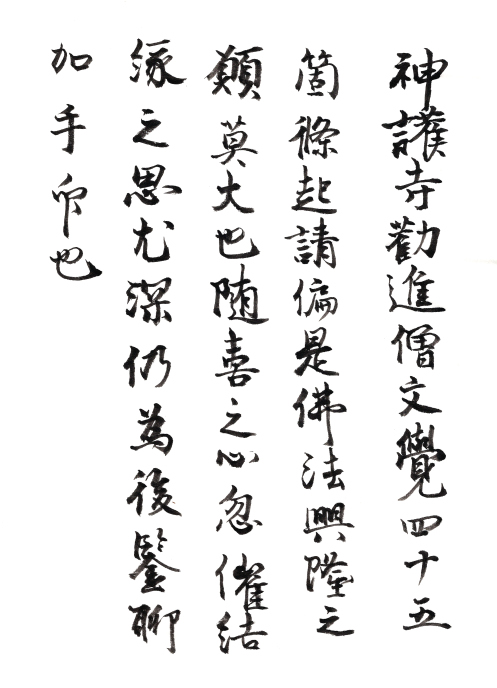 神護寺勸進僧文覺四十五
箇條起請偏是佛法興隆之
願莫大也随喜之心忽催結
緣之思尤深仍為後鑒聊
加手印也